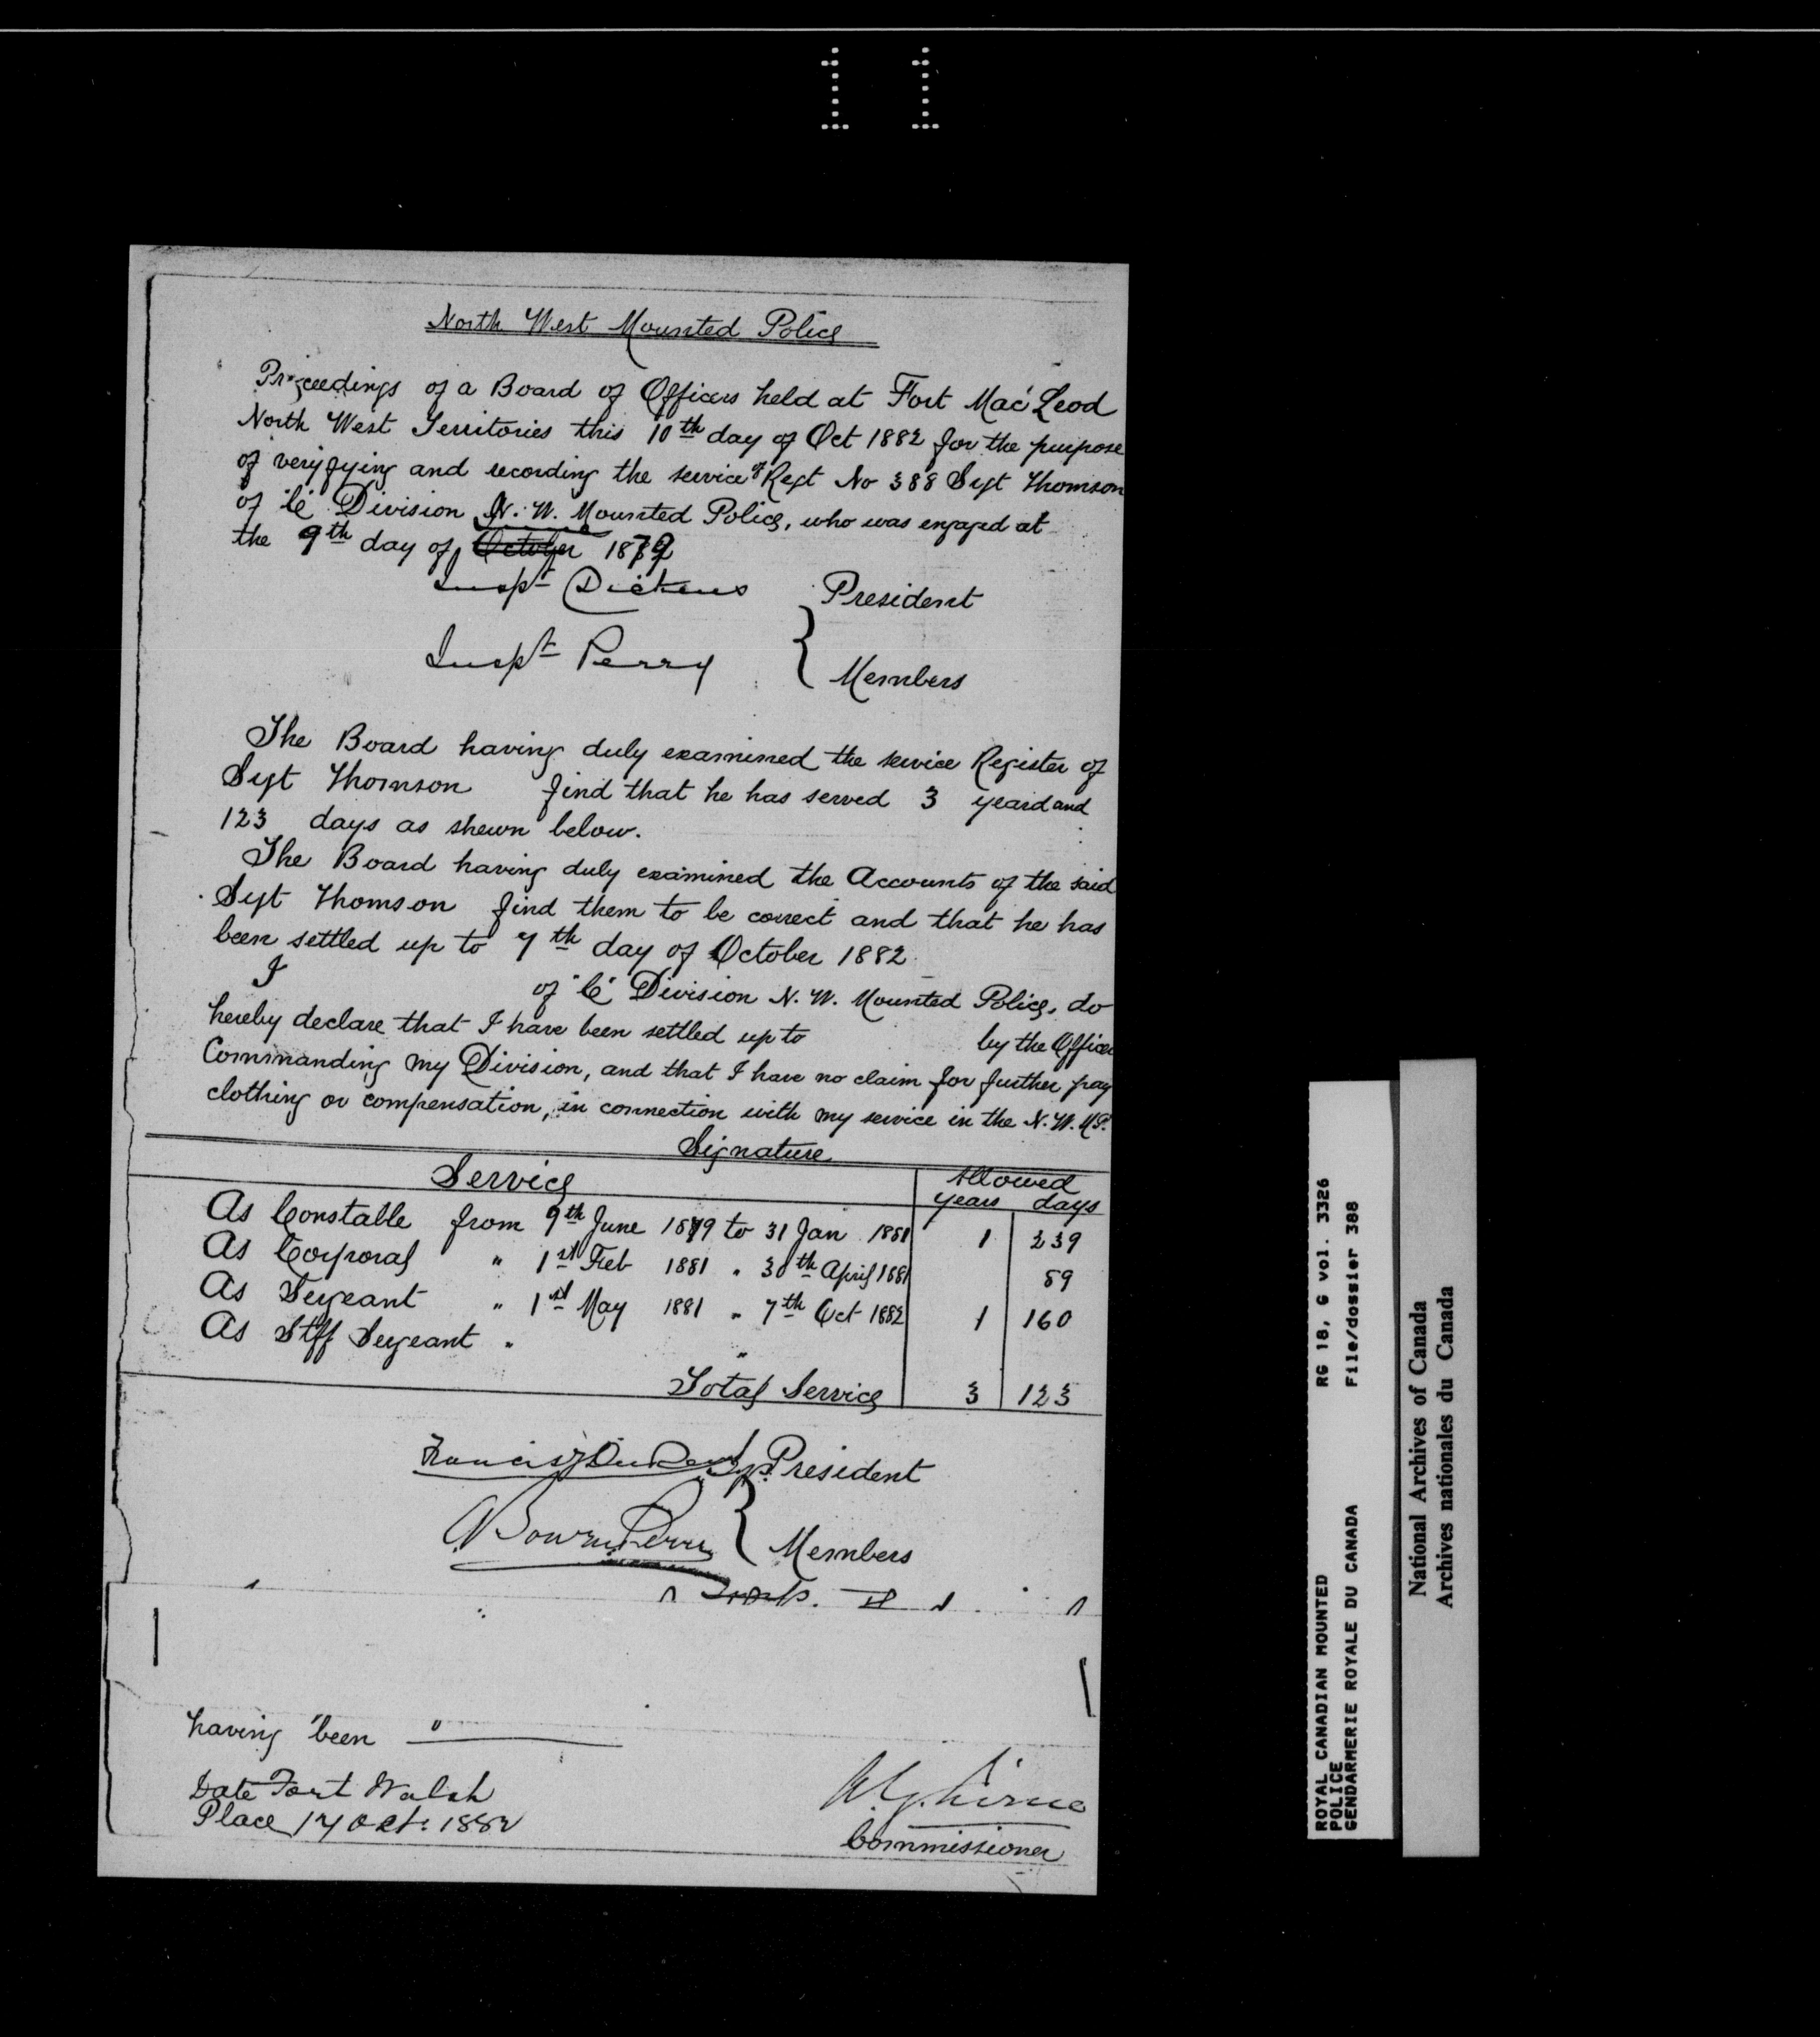 11
North West Mounted Police
Proceedings of a Board of Officers held at Fort Mac'Leod
North West Territories this 10th day of Oct 1882 for the purpose
of verifying and recording the service of Regt No 388 Sgt Thomson
of "C" Division N. W. Mounted Police, who was engaged at
the 9th day of October 1879
Inspt Dickens President
Inspt Perry } Members
The Board having duly examined the service Register of
Sgt Thomson find that he has served 3 years and
123 days as shewn below.
The Board having duly examined the Accounts of the said
Sgt Thomson find them to be correct and that he has
been settled up to 7th day of October 1882
I of "C" Division N. W. Mounted Police, do
hereby declare that I have been settled up to by the Officer
Commanding my Division, and that I have no claim for further pay
clothing or compensation, in connection with my service in the N. W. M P.
Signature
Service Allowed
years days
As Constable from 9th June 1879 to 31 Jan 1881 1 239
As Corporal " 1st Feb 1881 " 30th April 1881 89
As Sergeant " 1st May 1881 " 7th Oct 1882 1 160
As Stff Sergeant " "
Total Service 3 123
Francis J Dickens Insp. President
A Bowen Perry } Members
Insp.
having been "
Date Fort Walsh
Place 17 Oct. 1882
Commissioner
ROYAL CANADIAN MOUNTED RG 18, G vol. 3326
POLICE File/dossier 388
GENDARMERIE ROYALE DU CANADA
National Archives of Canada
Archives nationales du Canada